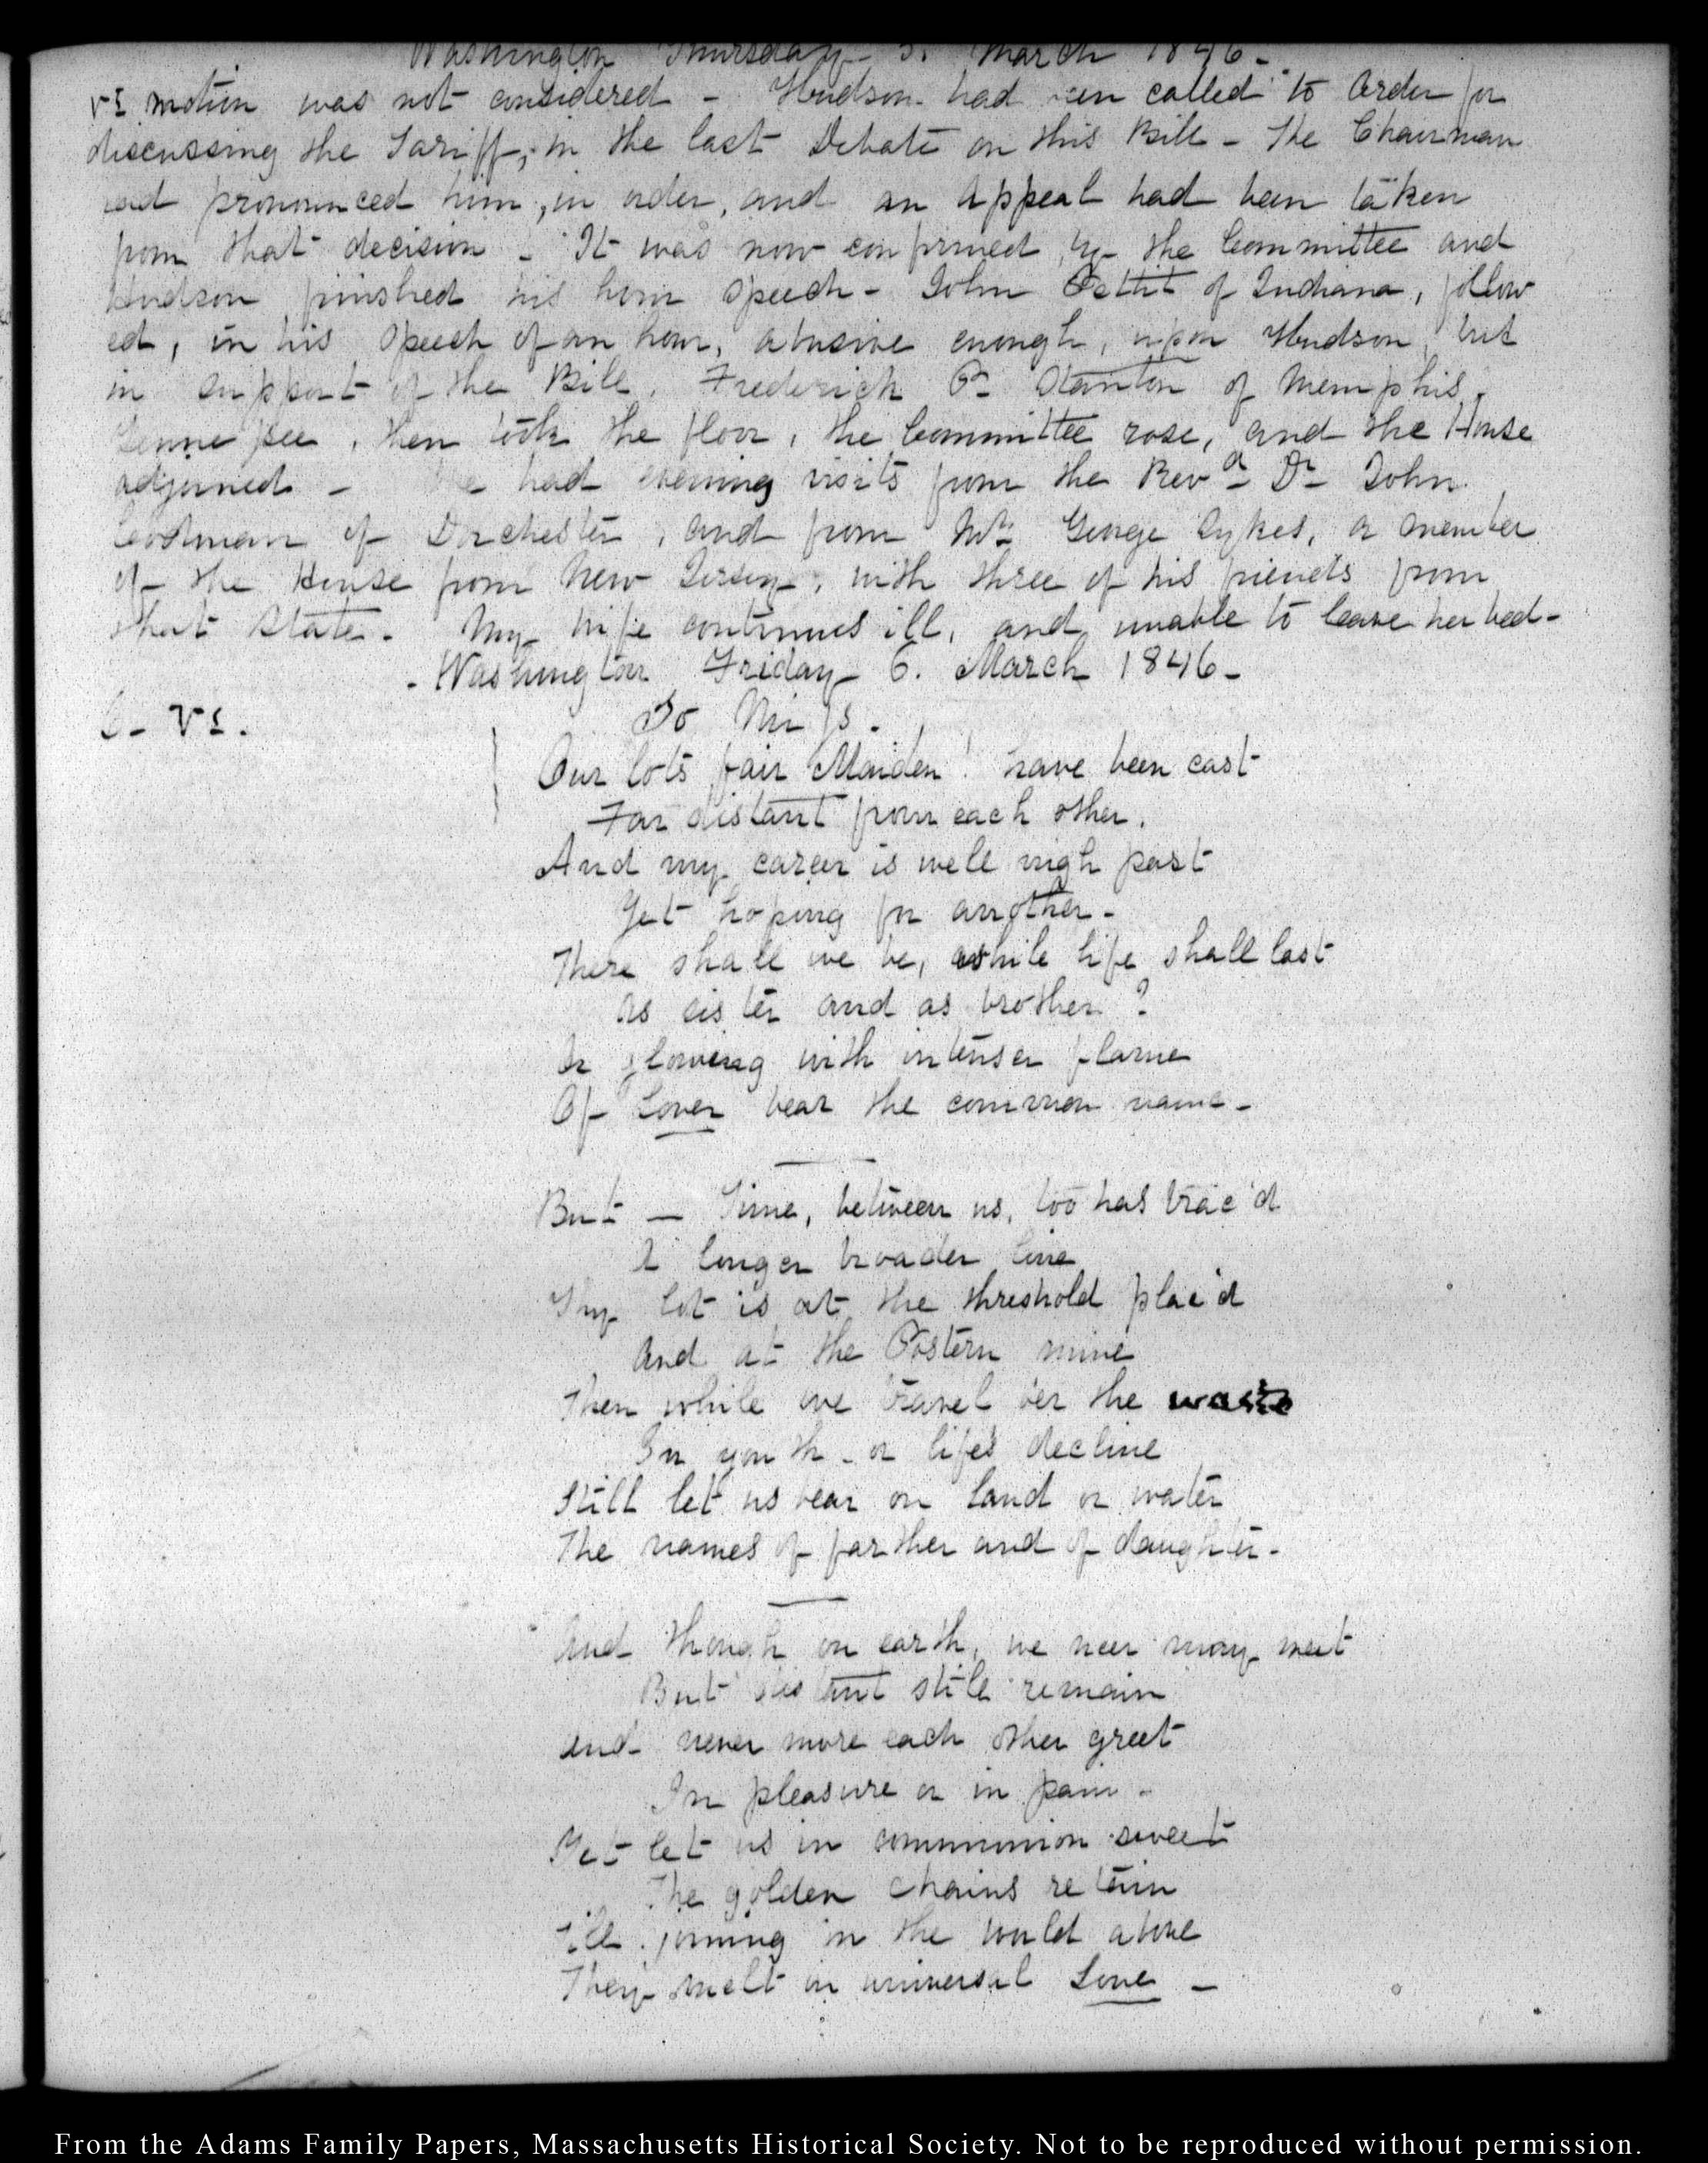 Washington Thursday 5. March 1846.
VI. motion was not considered - Hudson had been called to order for
discussing the Tariff, in the last Debate on this Bill - The Chairman
had pronounced him, in order, and an appeal had been taken
from that decision - It was now confirmed by the Committee and
Hudson finished his hour speech - John Pettit of Indiana, follow
ed, in his speech of an hour, abusive enough, upon Hudson, but
in support of the Bill. Frederick P. Stanton of Memphis,
Tennessee, then took the floor, the Committee rose, and the House
adjourned - We had evening visits from the Revd. Dr. John
Codman of Dorchester, and from Mr. George Sykes, a member
of the House from New Jersey, with three of his friends from
that State. My wife continues ill, and unable to leave her bed -
- Washington Friday 6. March 1846 -
VI.
To
Our lots fair Maiden! have been cast
Far distant from each other.
And my career is well nigh past
Yet hoping for another -
There shall we be, while life shall last
As sister and as brother?
Or glowing with intenser flame
Of Lover bear the common name -
But — Time, between us, too has trac'd
A longer broader line
Thy lot is at the threshold plac'd
And at the Postern mine
Then while we travel o'er the waste
In youth - or life's decline
Still let us bear on land or water
The names of farther and of daughter -
And though on earth, we neer may meet
But distant still remain
And never more each other greet
In pleasure or in pain -
Yet let us in communion sweet
The golden chains retain
Till joining in the world above
They melt in universal Love -
From the Adams Family Papers, Massachusetts Historical Society. Not to be reproduced without permission.